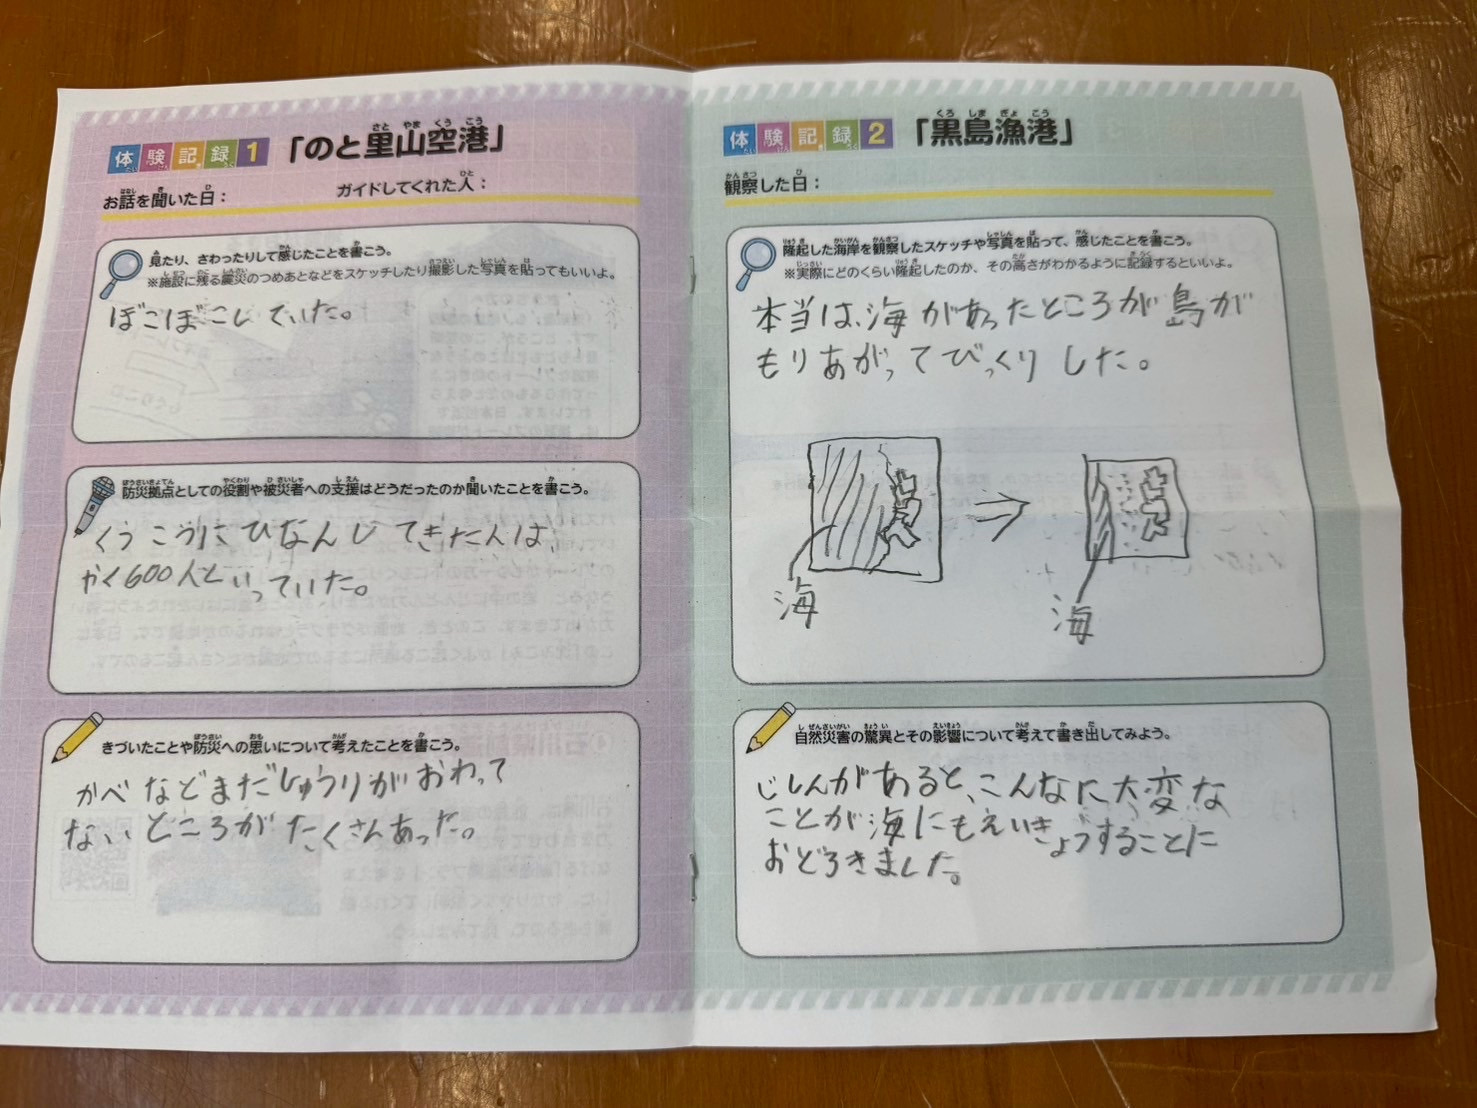 体験記録1「のと里山空港」
お話を聞いた日： ガイドしてくれた人：
見たり、さわったりして感じたことを書こう。
※施設に残る震災のつめあとなどをスケッチしたり撮影した写真を貼ってもいいよ。
ぼこぼこしていた。
防災拠点としての役割や被災者への支援はどうだったのか聞いたことを書こう。
くうこうにひなんしてきた人は、
やく600人といっていた。
きづいたことや防災への思いについて考えたことを書こう。
かべなどまだしゅうりがおわって
ないところがたくさんあった。
体験記録2「黒島漁港」
観察した日：
隆起した海岸を観察したスケッチや写真を貼って、感じたことを書こう。
※実際にどのくらい隆起したのか、その高さがわかるように記録するといいよ。
本当は、海があったところが島が
もりあがってびっくりした。
海
海
自然災害の驚異とその影響について考えて書き出してみよう。
じしんがあると、こんなに大変な
ことが海にもえいきょうすることに
おどろきました。